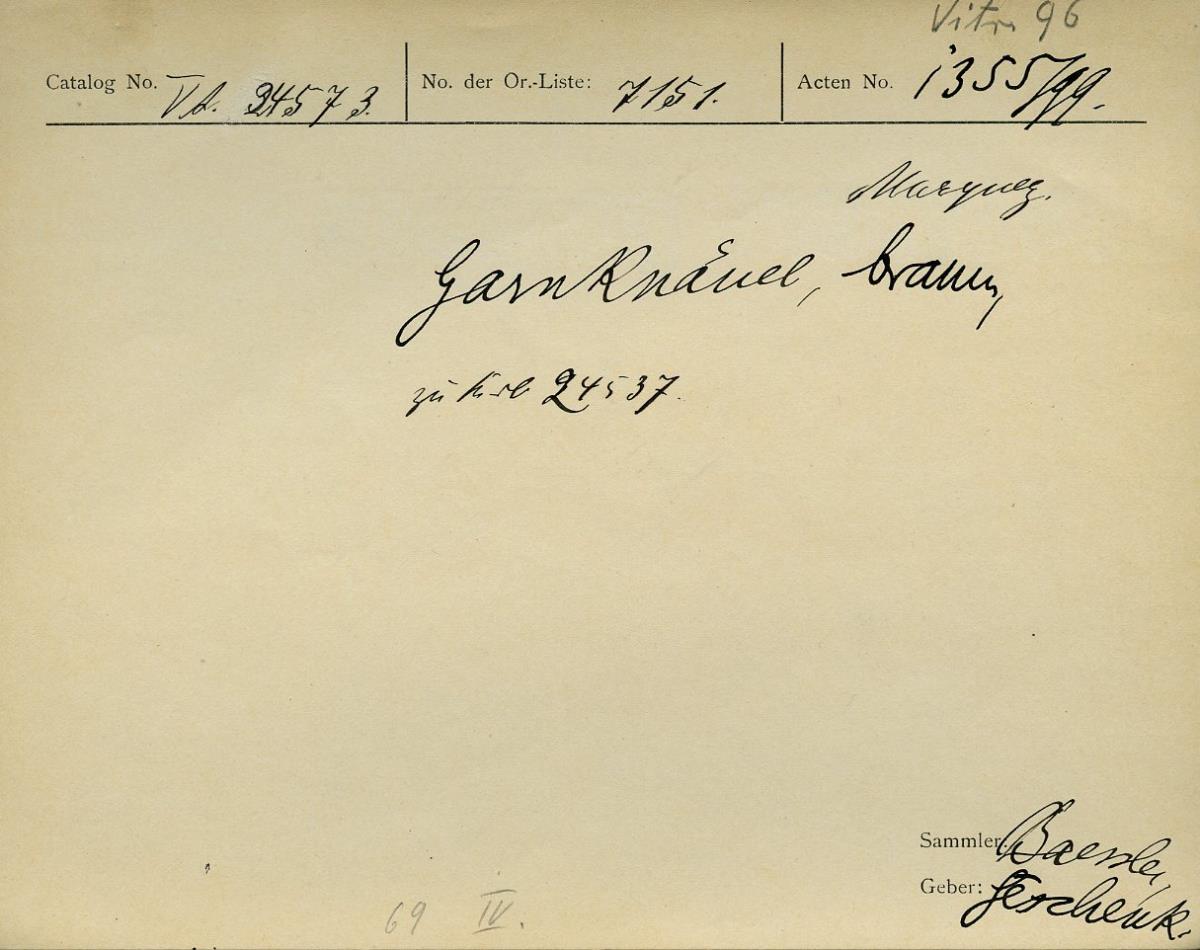 Vitr. 96
Catalog No. VA. 24573. No. der Or.-Liste: 7151. Acten No. 1355/99.
Marquez.
Garnknäuel, braun,
zu Krb 24537.
Sammler: Baessler,
Geber: Geschenk.
69 IV.